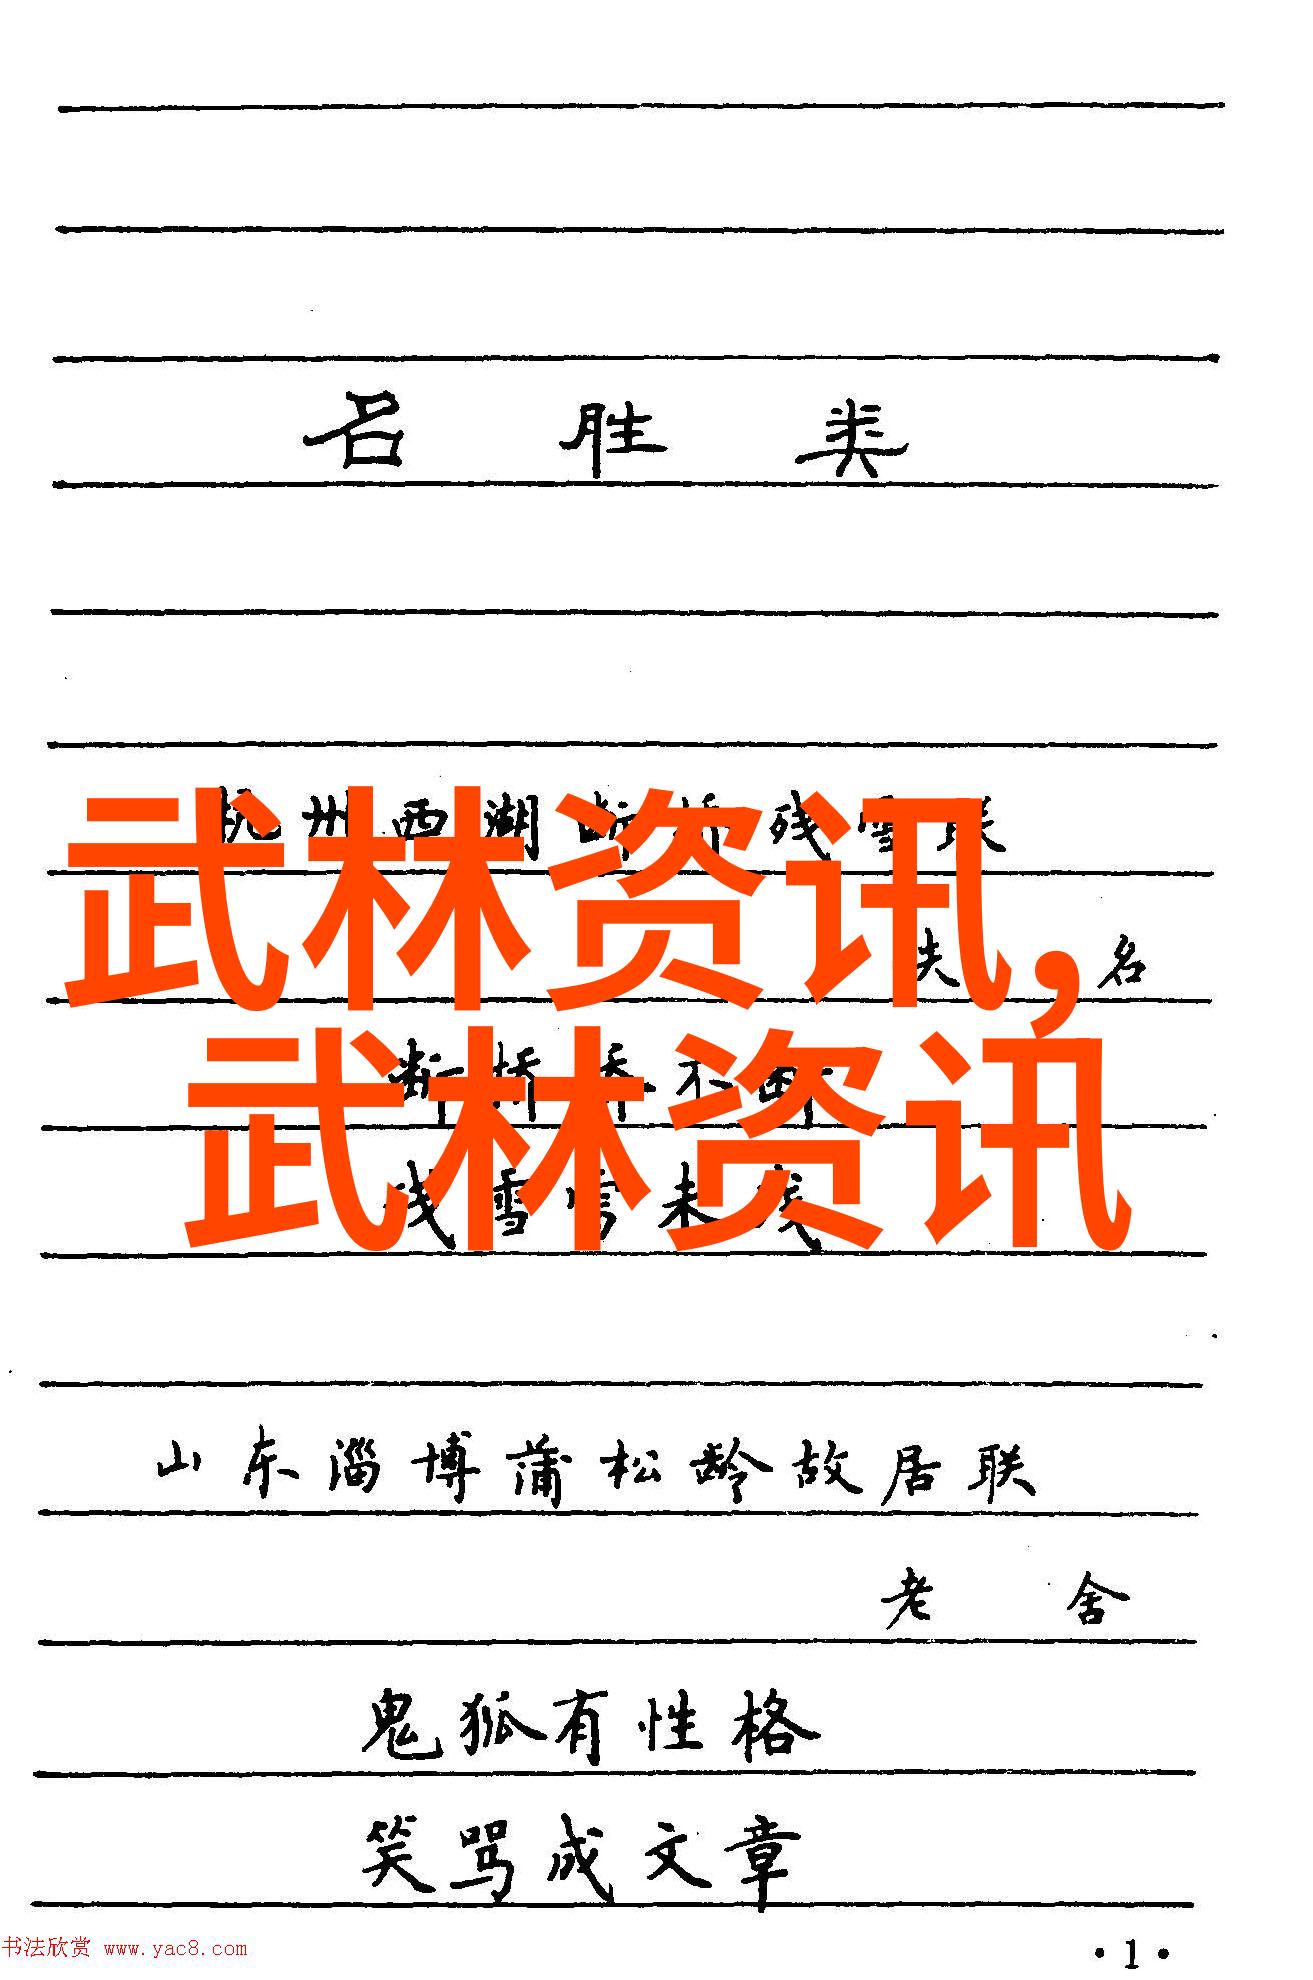 名胜类
杭州西湖断桥残雪联
武林资讯,
失名
断桥桥不断
武林资讯
残雪雪未残
山东淄博蒲松龄故居联
老舍
鬼狐有性格
笑骂成文章
书法欣赏 www.yac8.com
·1·